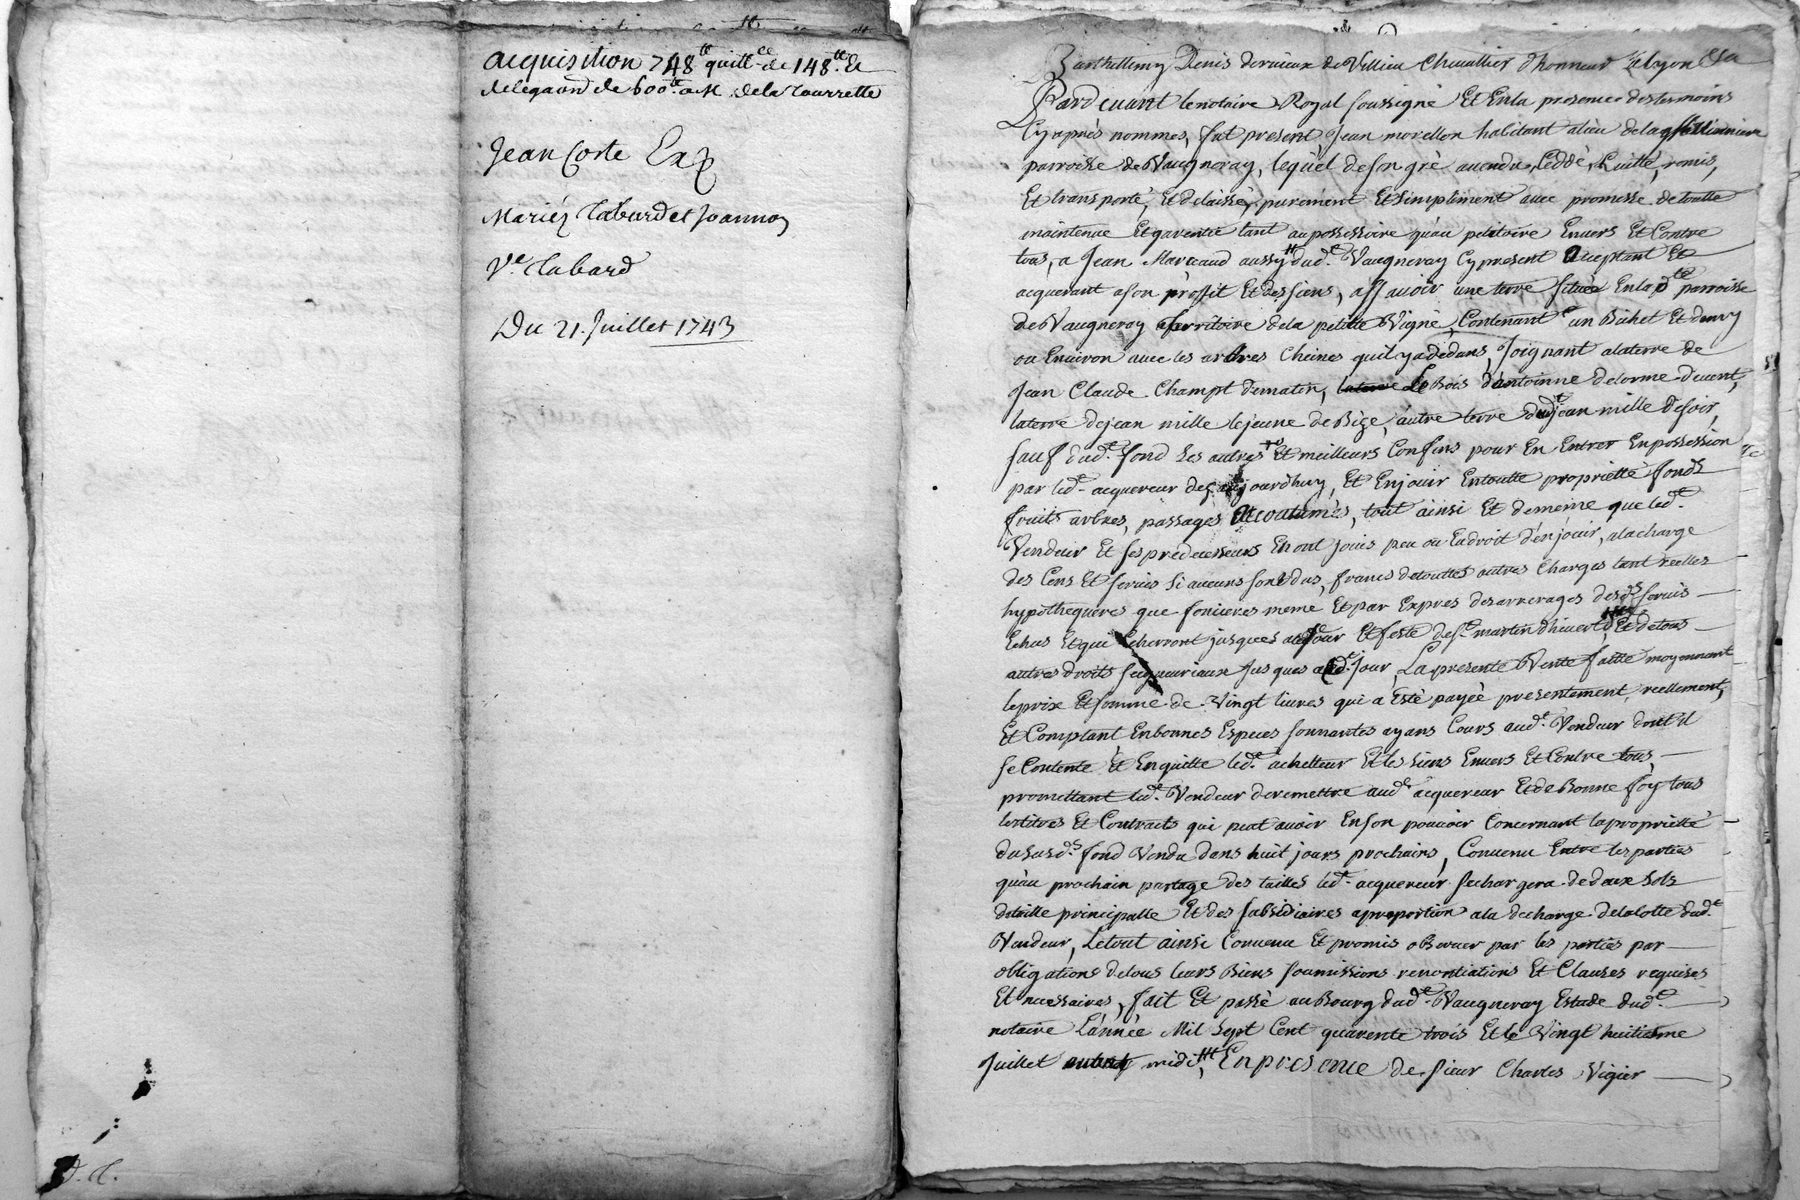 acquisition 748tt quittce de 148tt. &
delegaōn de 600tt. a M. de la Tourrette
Jean Coste Exp
Mariéz Tabard et Joannon
Ve. Tabard
Du 21. Juillet 1743
D. C.
Barthellemy Denis dervieux de Villieu Chevallier d'honneur
Pardevant le notaire Royal soussigné Et En la presence des temoins
Cy après nommés, fut present, Jean morellon habitant a lieu de la
parroisse de Vaugneray, lequel de son grè a vendu, Cèddè, Quitté, remis,
Et transporté, Et delaissé, purement Et simplement avec promesse de toutte
maintenue Et garentie tant au possessoire qu'au petitoire Envers Et Contre
tous, a Jean Marceaud aussy ht dud.t Vaugneray Cy present Acceptant Et
acquerant a son pròffit Et des siens, assavoir une terre située En la dte parroisse
de Vaugneray territoire de la petitte Vigne, Contenant un Bichet Et demy
ou Environ avec les arbres Cheines qu'il y a dedans, Joignant a la terre de
Jean Claude Champt de matin, la terre Le Bois d'antoinne delorme de vent,
la terre de jean mille le jeune de Bize, autre terre dudt jean mille de soir,
sauf dud.t fond ses autres Et meilleurs Confins pour En Entrer En possession
par led.t acquereur dez aujourdhuy, Et En jouir En toutte proprietté fonds
fruits arbres, passages Et coutumes, tout ainsi Et de mème que led.t
Vendeur Et ses predecesseurs En ont jouis peu ou Eu droit d'en jouir, a la charge
des Cens Et servis si aucuns sont dus, francs de touttes autres Charges tant reelles
hypothequeres que foncieres meme Et par Expres des arrerages desds. servis
Echus Et qui Echerront jusques au jour Et feste de St. martin d'hivert Et de tous
autres droits seigneuriaux Jusques aud.t jour, La presente Vente faitte moyennant
le prix Et somme de Vingt livres qui a Esté payée presentement, reellement,
Et Comptant En bonnes Especes sonnantes ayans Cours aud.t Vendeur dont il
se Contente Et En quitte led.t achetteur Et les siens Envers Et Contre tous,
promettant led.t Vendeur de remettre aud.t acquereur Et de Bonne foy tous
les titres Et Contracts qui peut avoir En son pouvoir Concernant la proprietté
du susd.t fond Vendu dans huit jours prochains, Convenu Entre les parties
qu'au prochain partage des tailles led.t acquereur se chargera de deux sols
de taille principalle Et des subsidiaires a proportion a la decharge de la cotte dud.t
Vendeur, Le tout ainsi Convenu Et promis observer par les parties par
obligations de tous leurs Biens soumissions renontiations Et Clauses requises
Et necessaires, fait Et passé au Bourg dud.t Vaugneray Estude dud.t
notaire L'année Mil Sept Cent quarente trois Et le Vingt huitiesme
Juillet midi, En presence de sieur Charles Vigier